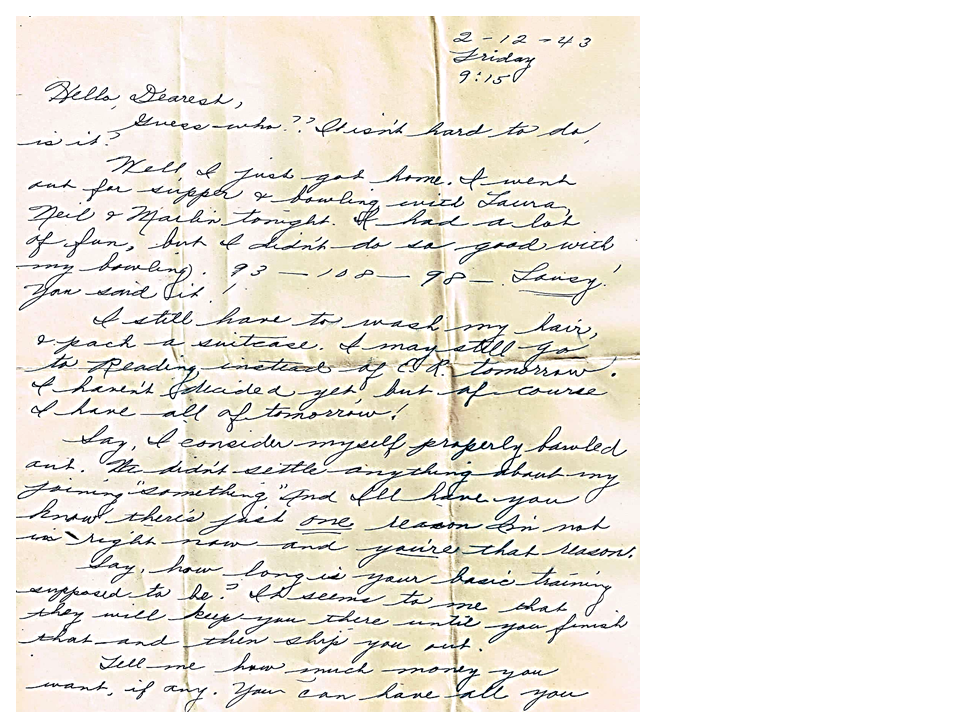 2-12-43
Friday
9:15
Hello, Dearest,
Guess who?? It isn't hard to do,
is it?
Well I just got home. I went
out for supper & bowling with Laura,
Neil & Marlin tonight. I had a lot
of fun, but I didn't do so good with
my bowling. 93 — 108 — 98 —. Lousy!
You said it!
I still have to wash my hair,
& pack a suitcase. I may still go
to Reading instead of C.R. tomorrow.
I haven't decided yet, but of course
I have all of tomorrow!
Say, I consider myself properly bawled
out. We didn't settle anything about my
joining "something" And I'll have you
know there's just one reason I'm not
in right now and you're that reason.
Say, how long is your basic training
supposed to be? It seems to me that
they will keep you there until you finish
that and then ship you out.
Tell me how much money you
want, if any. You can have all you